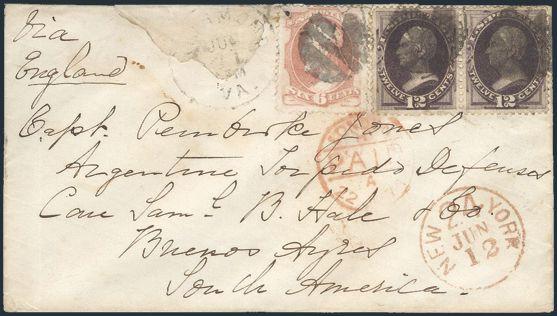 Via
England
JUN
VA.
SIX 6 CENTS
TWELVE 12 CENTS
TWELVE 12 CENTS
Capt. Pembroke Jones
Argentine Torpedo Defenses
Care Saml. B. Hale & Co.
Buenos Ayres
South America.
PAID
NEW YORK
24
JUN
12